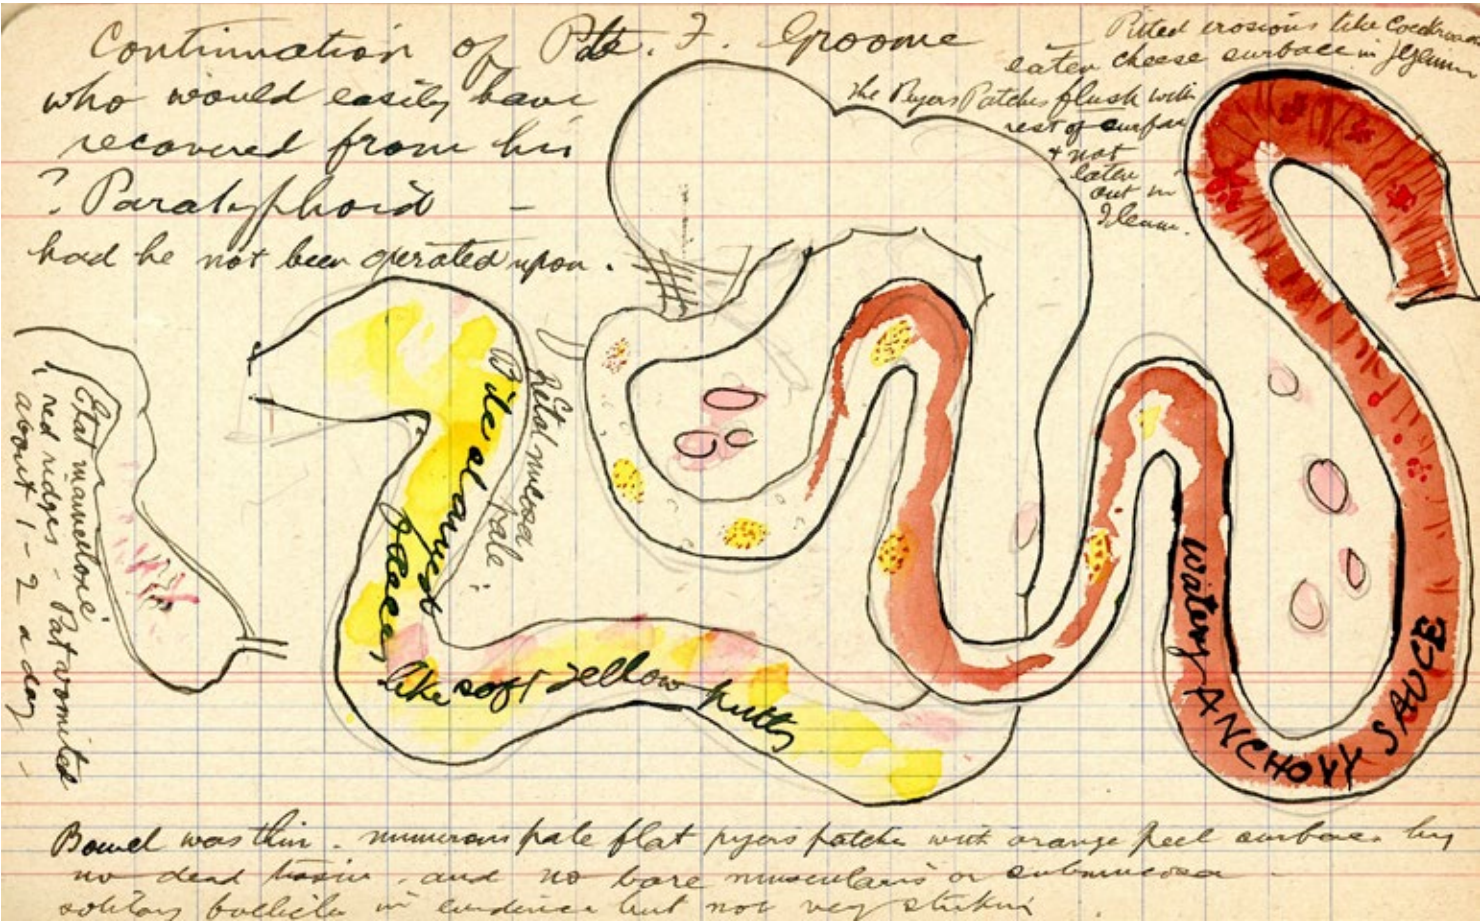 Continuation of Pte. F. Groome
who would easily have
recovered from his
? Paratyphoid
had he not been operated upon.
Pitted erosions like Cockroach
eaten cheese surface in Jejunum
the Peyers Patches flush with
rest of surface
& not
eaten
out in
Ileum.
Etat mamelloné
red ridges - Pat vomited
about 1 - 2 a day -
Bile stained
faeces,
like soft yellow putty
mucosa
pale.
watery ANCHOVY SAUCE
Bowel was thin. numerous pale flat pyers patches with orange peel surfaces but
no dead tissue, and no bare muscularis or submucosa
solitary follicles in evidence but not very striking